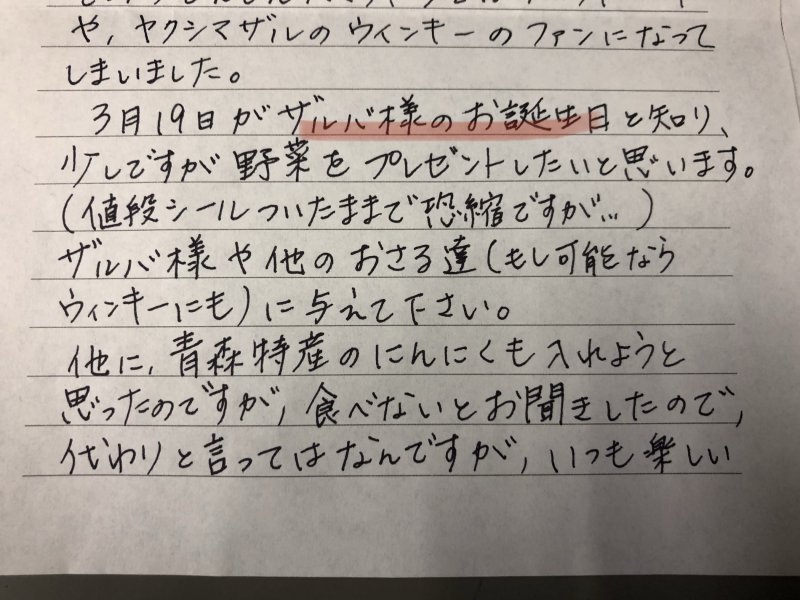 や，ヤクシマザルのウィンキーのファンになって
しまいました。
3月19日がザルバ様のお誕生日と知り、
少しですが野菜をプレゼントしたいと思います。
（値段シールついたままで恐縮ですが…）
ザルバ様や他のおさる達（もし可能なら
ウィンキーにも）に与えて下さい。
他に，青森特産のにんにくも入れようと
思ったのですが，食べないとお聞きしたので，
代わりと言ってはなんですが，いつも楽しい